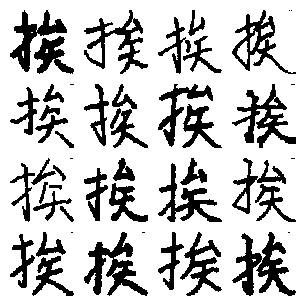 挨挨挨挨
挨挨挨挨
挨挨挨挨
挨挨挨挨